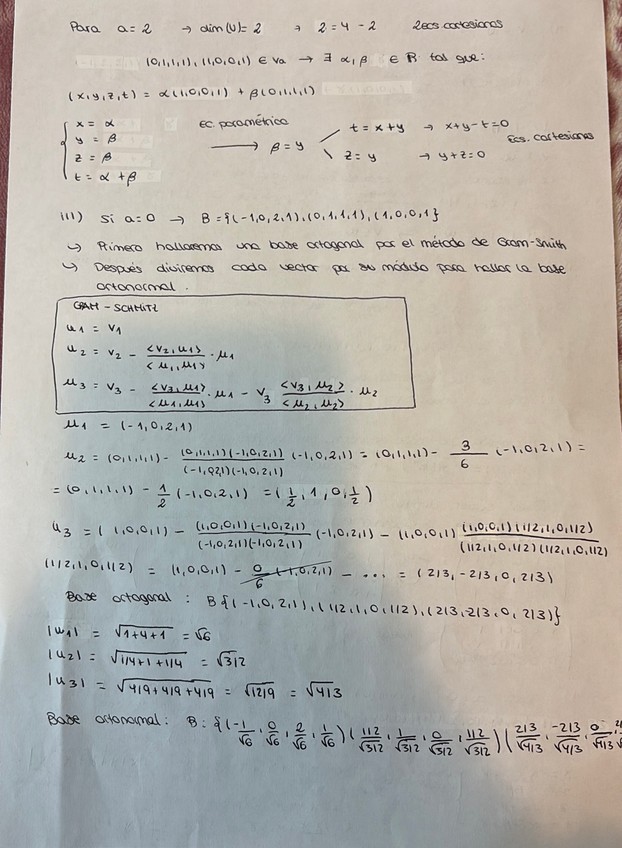 Para a=2 → dim(U)=2 → 2=4-2 2ecs cartesianas
(0,1,1,1), (1,0,0,1) ∈ Va → ∃ α,β ∈ R tal que:
(x,y,z,t) = α(1,0,0,1) + β(0,1,1,1)
x = α
y = β
z = β
t = α + β
Ec. paramétrica
→ β = y
t = x+y → x+y-t=0
z = y → y+z=0
Ecs. cartesianas
iii) Si a=0 → B={(-1,0,2,1),(0,1,1,1),(1,0,0,1}
↳ Primero hallaremos una base ortogonal por el método de Gram-Smith
↳ Después dividiremos cada vector por su módulo para hallar la base
ortonormal.
GRAM-SCHMITZ
u1 = v1
u2 = v2 - <v2,u1>/<u1,u1> · u1
u3 = v3 - <v3,u1>/<u1,u1> · u1 - v3 <v3,u2>/<u2,u2> · u2
u1 = (-1,0,2,1)
u2 = (0,1,1,1) - (0,1,1,1)(-1,0,2,1)/(-1,0,2,1)(-1,0,2,1) (-1,0,2,1) = (0,1,1,1) - 3/6 (-1,0,2,1) =
= (0,1,1,1) - 1/2 (-1,0,2,1) = (1/2, 1, 0, 1/2)
u3 = (1,0,0,1) - (1,0,0,1)(-1,0,2,1)/(-1,0,2,1)(-1,0,2,1) (-1,0,2,1) - (1,0,0,1) (1,0,0,1)(1/2,1,0,1/2)/(1/2,1,0,1/2)(1/2,1,0,1/2)
(1/2,1,0,1/2) = (1,0,0,1) - 0/6 (-1,0,2,1) - ... = (2/3,-2/3,0,2/3)
Base octogonal : B{(-1,0,2,1),(1/2,1,0,1/2),(2/3,-2/3,0,2/3)}
|u1| = √1+4+1 = √6
|u2| = √1/4+1+1/4 = √3/2
|u3| = √4/9+4/9+4/9 = √12/9 = √4/3
Base ortonormal: B:{(-1/√6, 0/√6, 2/√6, 1/√6)(1/2/√3/2, 1/√3/2, 0/√3/2, 1/2/√3/2)(2/3/√4/3, -2/3/√4/3, 0/√4/3,